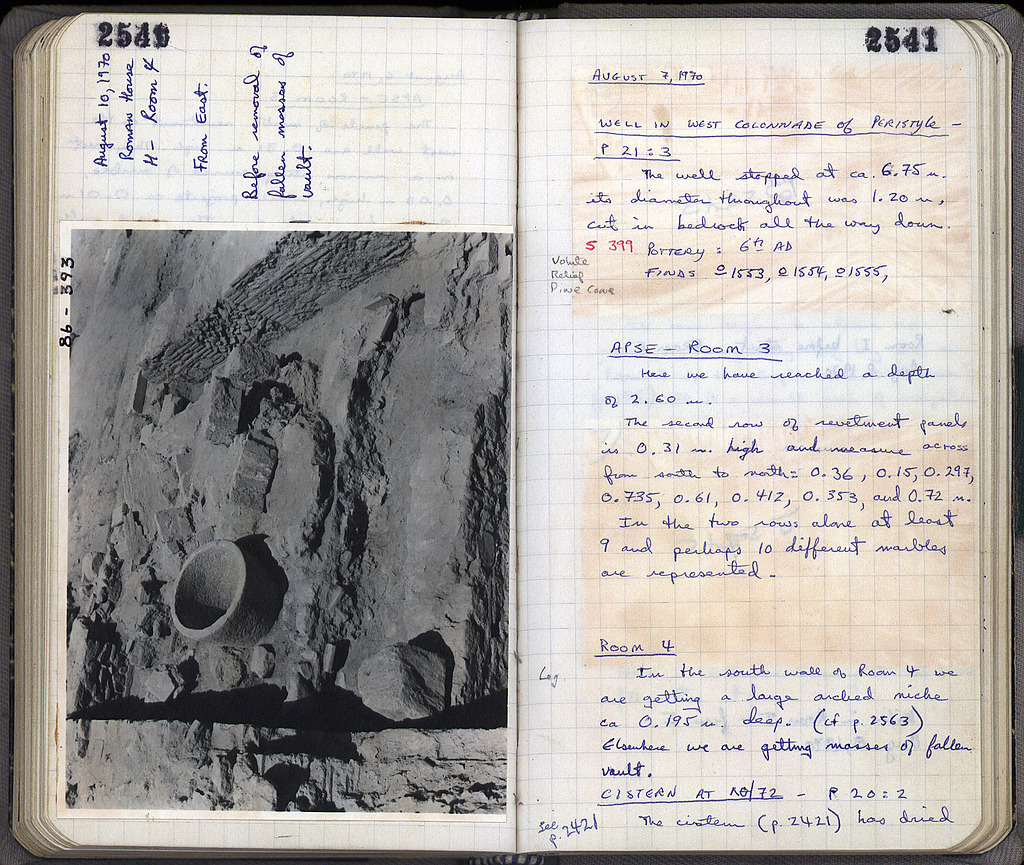 2540
August 10, 1970
Roman House
H - Room 4
From East.
Before removal of
fallen masses of
vault.
86-393
2541
August 7, 1970
Well in West Colonnade of Peristyle -
P 21:3
The well stopped at ca. 6.75 m.
its diameter throughout was 1.20 m,
cut in bedrock all the way down.
S 399 Pottery: 6th AD
Volute
Relief
Pine Cone
Finds 1553, 1554, 1555,
Apse - Room 3
Here we have reached a depth
of 2.60 m.
The second row of revetment panels
is 0.31 m. high and measure across
from south to north: 0.36, 0.15, 0.297,
0.735, 0.61, 0.412, 0.353, and 0.72 m.
In the two rows alone at least
9 and perhaps 10 different marbles
are represented.
Room 4
Leg
In the south wall of Room 4 we
are getting a large arched niche
ca 0.195 m. deep. (cf p. 2563)
Elsewhere we are getting masses of fallen
vault.
Cistern at /72 - P 20:2
See
p. 2421
The cistern (p. 2421) has dried